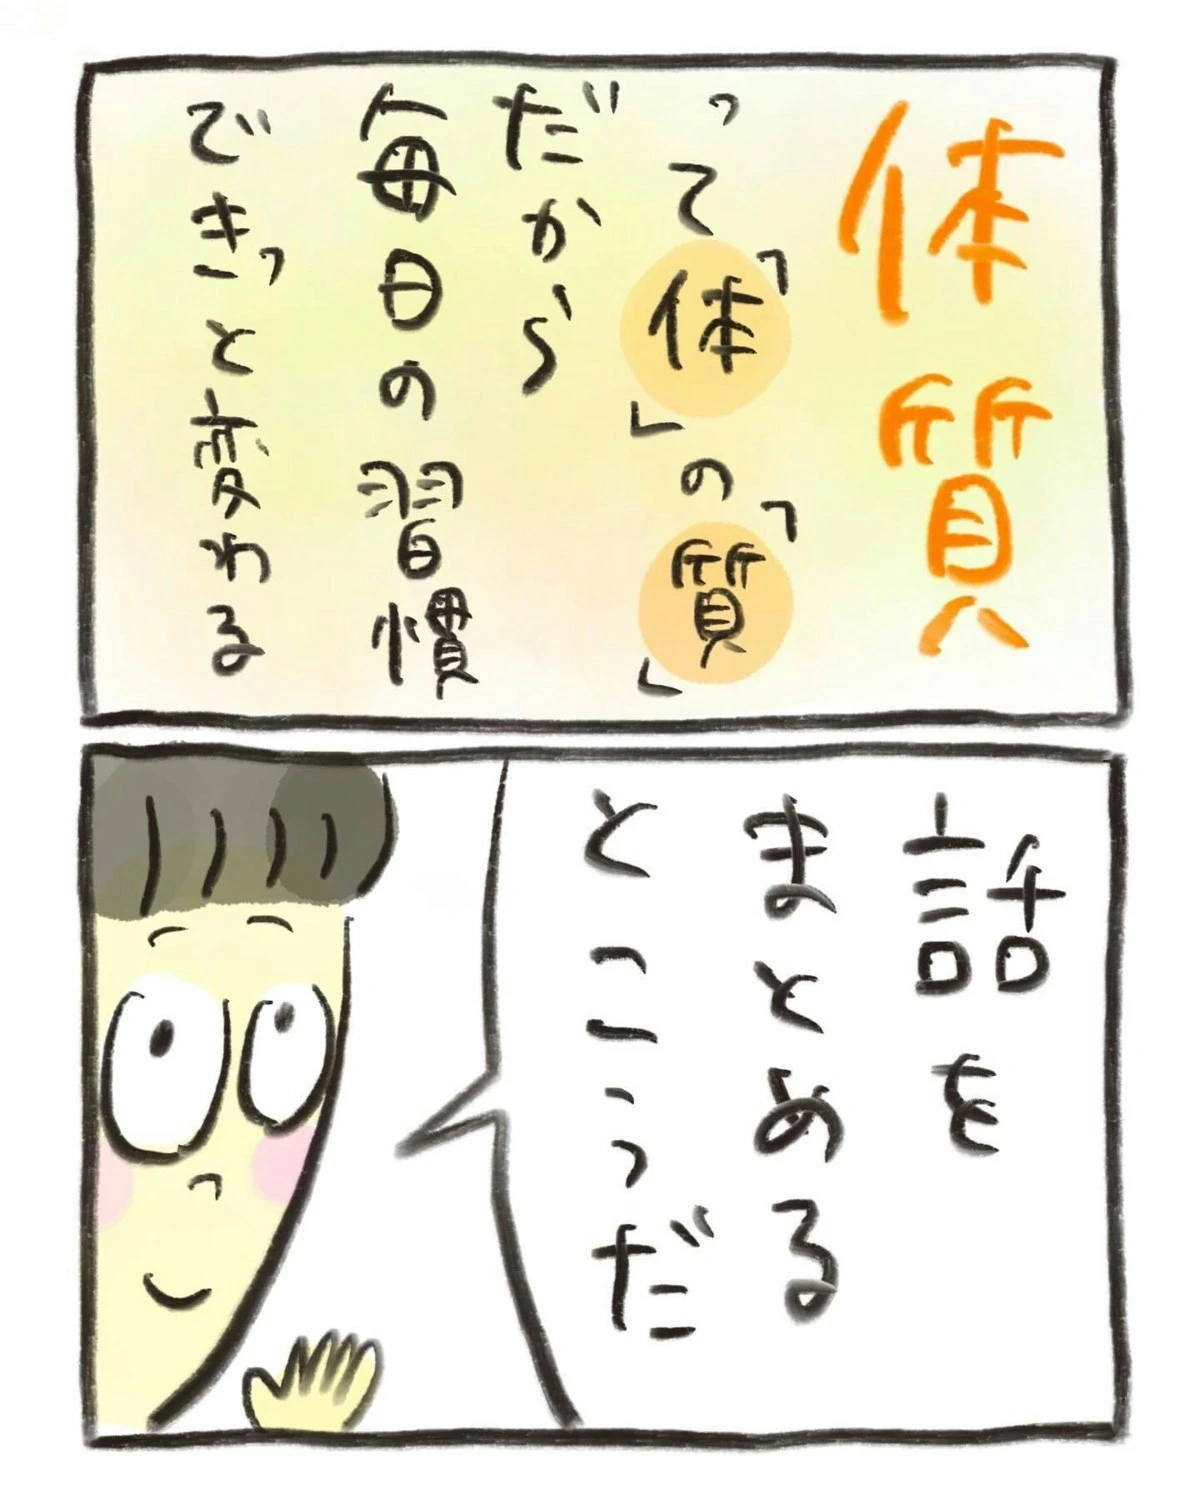 体質
って「体」の「質」
だから
毎日の習慣
できっと変わる
話を
まとめる
とこうだ